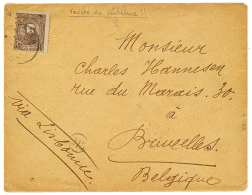 Monsieur
Charles Hannesen
rue du Marais. 30.
à
Bruxelles.
Belgique
via Lisbonne.